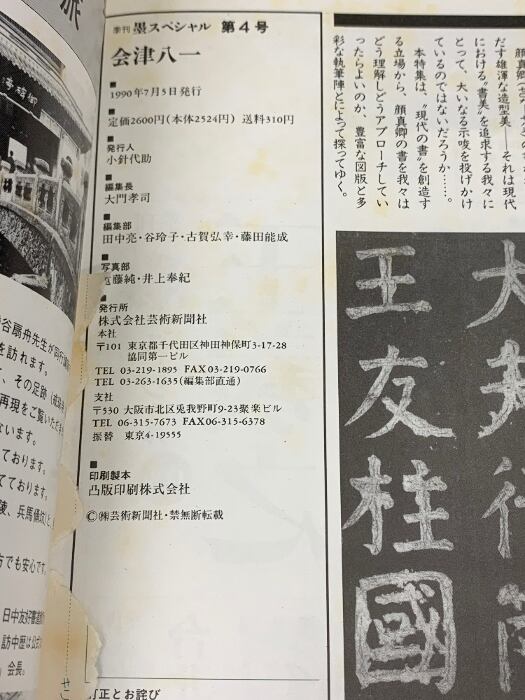 季刊 墨スペシャル 第4号
会津八一
■
1990年7月5日発行
■
定価2600円(本体2524円) 送料310円
■
発行人
小針代助
■
編集長
大門孝司
■
編集部
田中亮・谷玲子・古賀弘幸・藤田能成
■
写真部
藤純・井上奉紀
■
発行所
株式会社芸術新聞社
本社
〒101 東京都千代田区神田神保町3-17-28
協同第一ビル
TEL 03-219-1895 FAX03-219-0766
TEL 03-263-1635(編集部直通)
支社
〒530 大阪市北区兎我野町9-23聚楽ビル
TEL 06-315-7673 FAX06-315-6378
振替 東京4-19555
■
印刷製本
凸版印刷株式会社
©㈱芸術新聞社・禁無断転載
訂正とお詫び
だす雄渾な造型美――それは現代
における〝書美〟を追求する我々に
とって、大いなる示唆を投げかけ
ているのではないだろうか……。
本特集は、〝現代の書〟を創造す
る立場から、顔真卿の書を我々は
どう理解しどうアプローチしてい
ったらよいのか、豊富な図版と多
彩な執筆陣とによって探ってゆく。
王友桂國
派
谷扇舟先生が同行
を訪れます。
、その足跡
再現をご覧いただ
ないます。
ております。
てております。
陵、兵馬俑坑
方でも安心です。
日中友好書道
訪中歴は公式
会長。